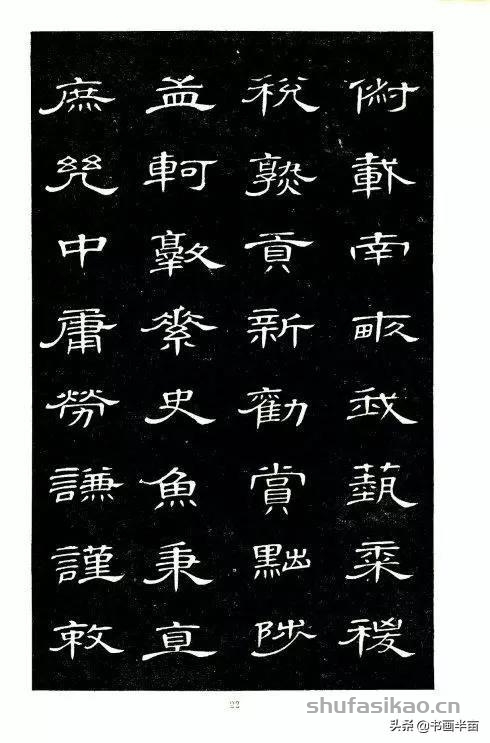 俶載南畝我蓺黍稷
稅熟貢新勸賞黜陟
孟軻敦素史魚秉直
庶幾中庸勞謙謹敕
22
shufasikao.cn
头条 @书画半亩